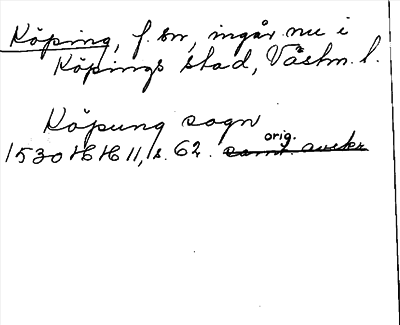 Köping, f. sn, ingår nu i
Köpings stad, Västm. l.
Köpung sogn
orig.
1530 HH 11, 1 s. 62. samt. avskr